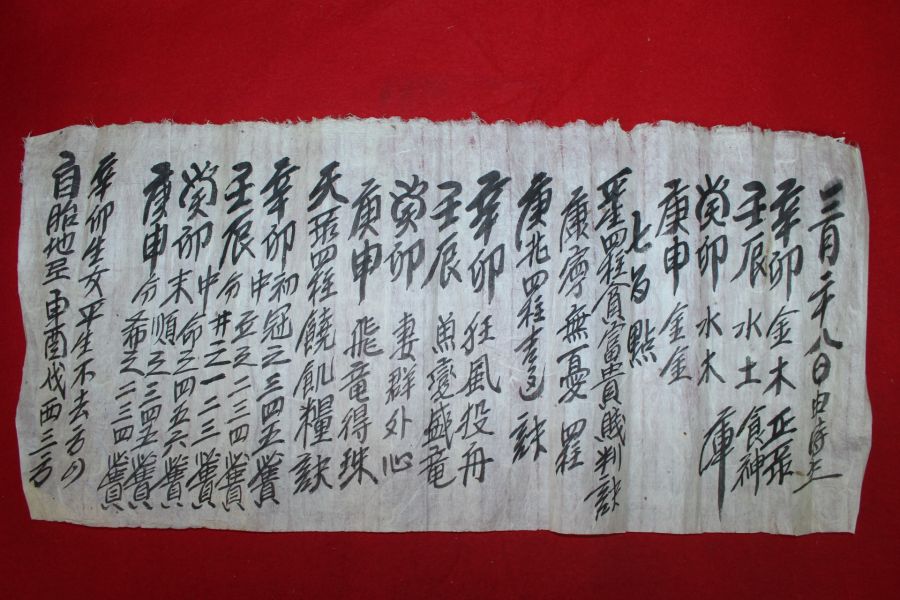 三月二十八日申時生
辛卯 金木 正家
壬辰 水土 食神
癸卯 水木 庫
庚申 金金
七百點
四柱貧富貴賤判訣
康寧無憂 四柱
庚兆四柱吉凶訣
辛卯 狂風投舟
壬辰 魚變盛竜
癸卯 妻群外心
庚申 飛竜得珠
天羅四柱饒飢糧訣
辛卯 初冠之三四五
中
壬辰 分五之二三四
癸卯 中井之一二三
末命之四五六
庚申 順之三四五
分希之二三四
辛卯生女平生不去方
自胎地至申酉戌西三方